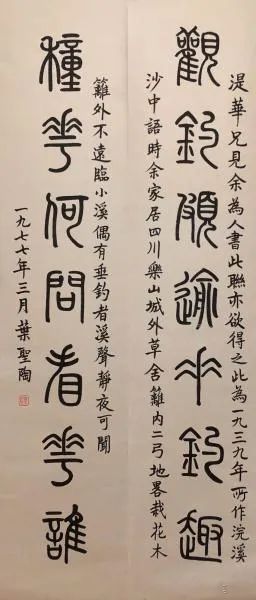 觀釣頗逾垂釣趣
種花何問看花誰
湜華兄見余為人書此聯亦欲得之此為一九三九年所作浣溪
沙中語時余家居四川樂山城外草舍籬內二弓地畧栽花木
籬外不遠臨小溪偶有垂釣者溪聲靜夜可聞
一九七七年三月葉聖陶